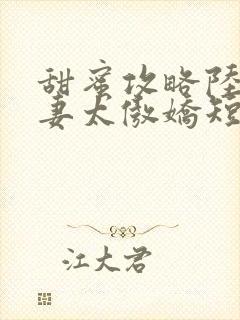 甜蜜攻略陸
妻太傲嬌短
江大君